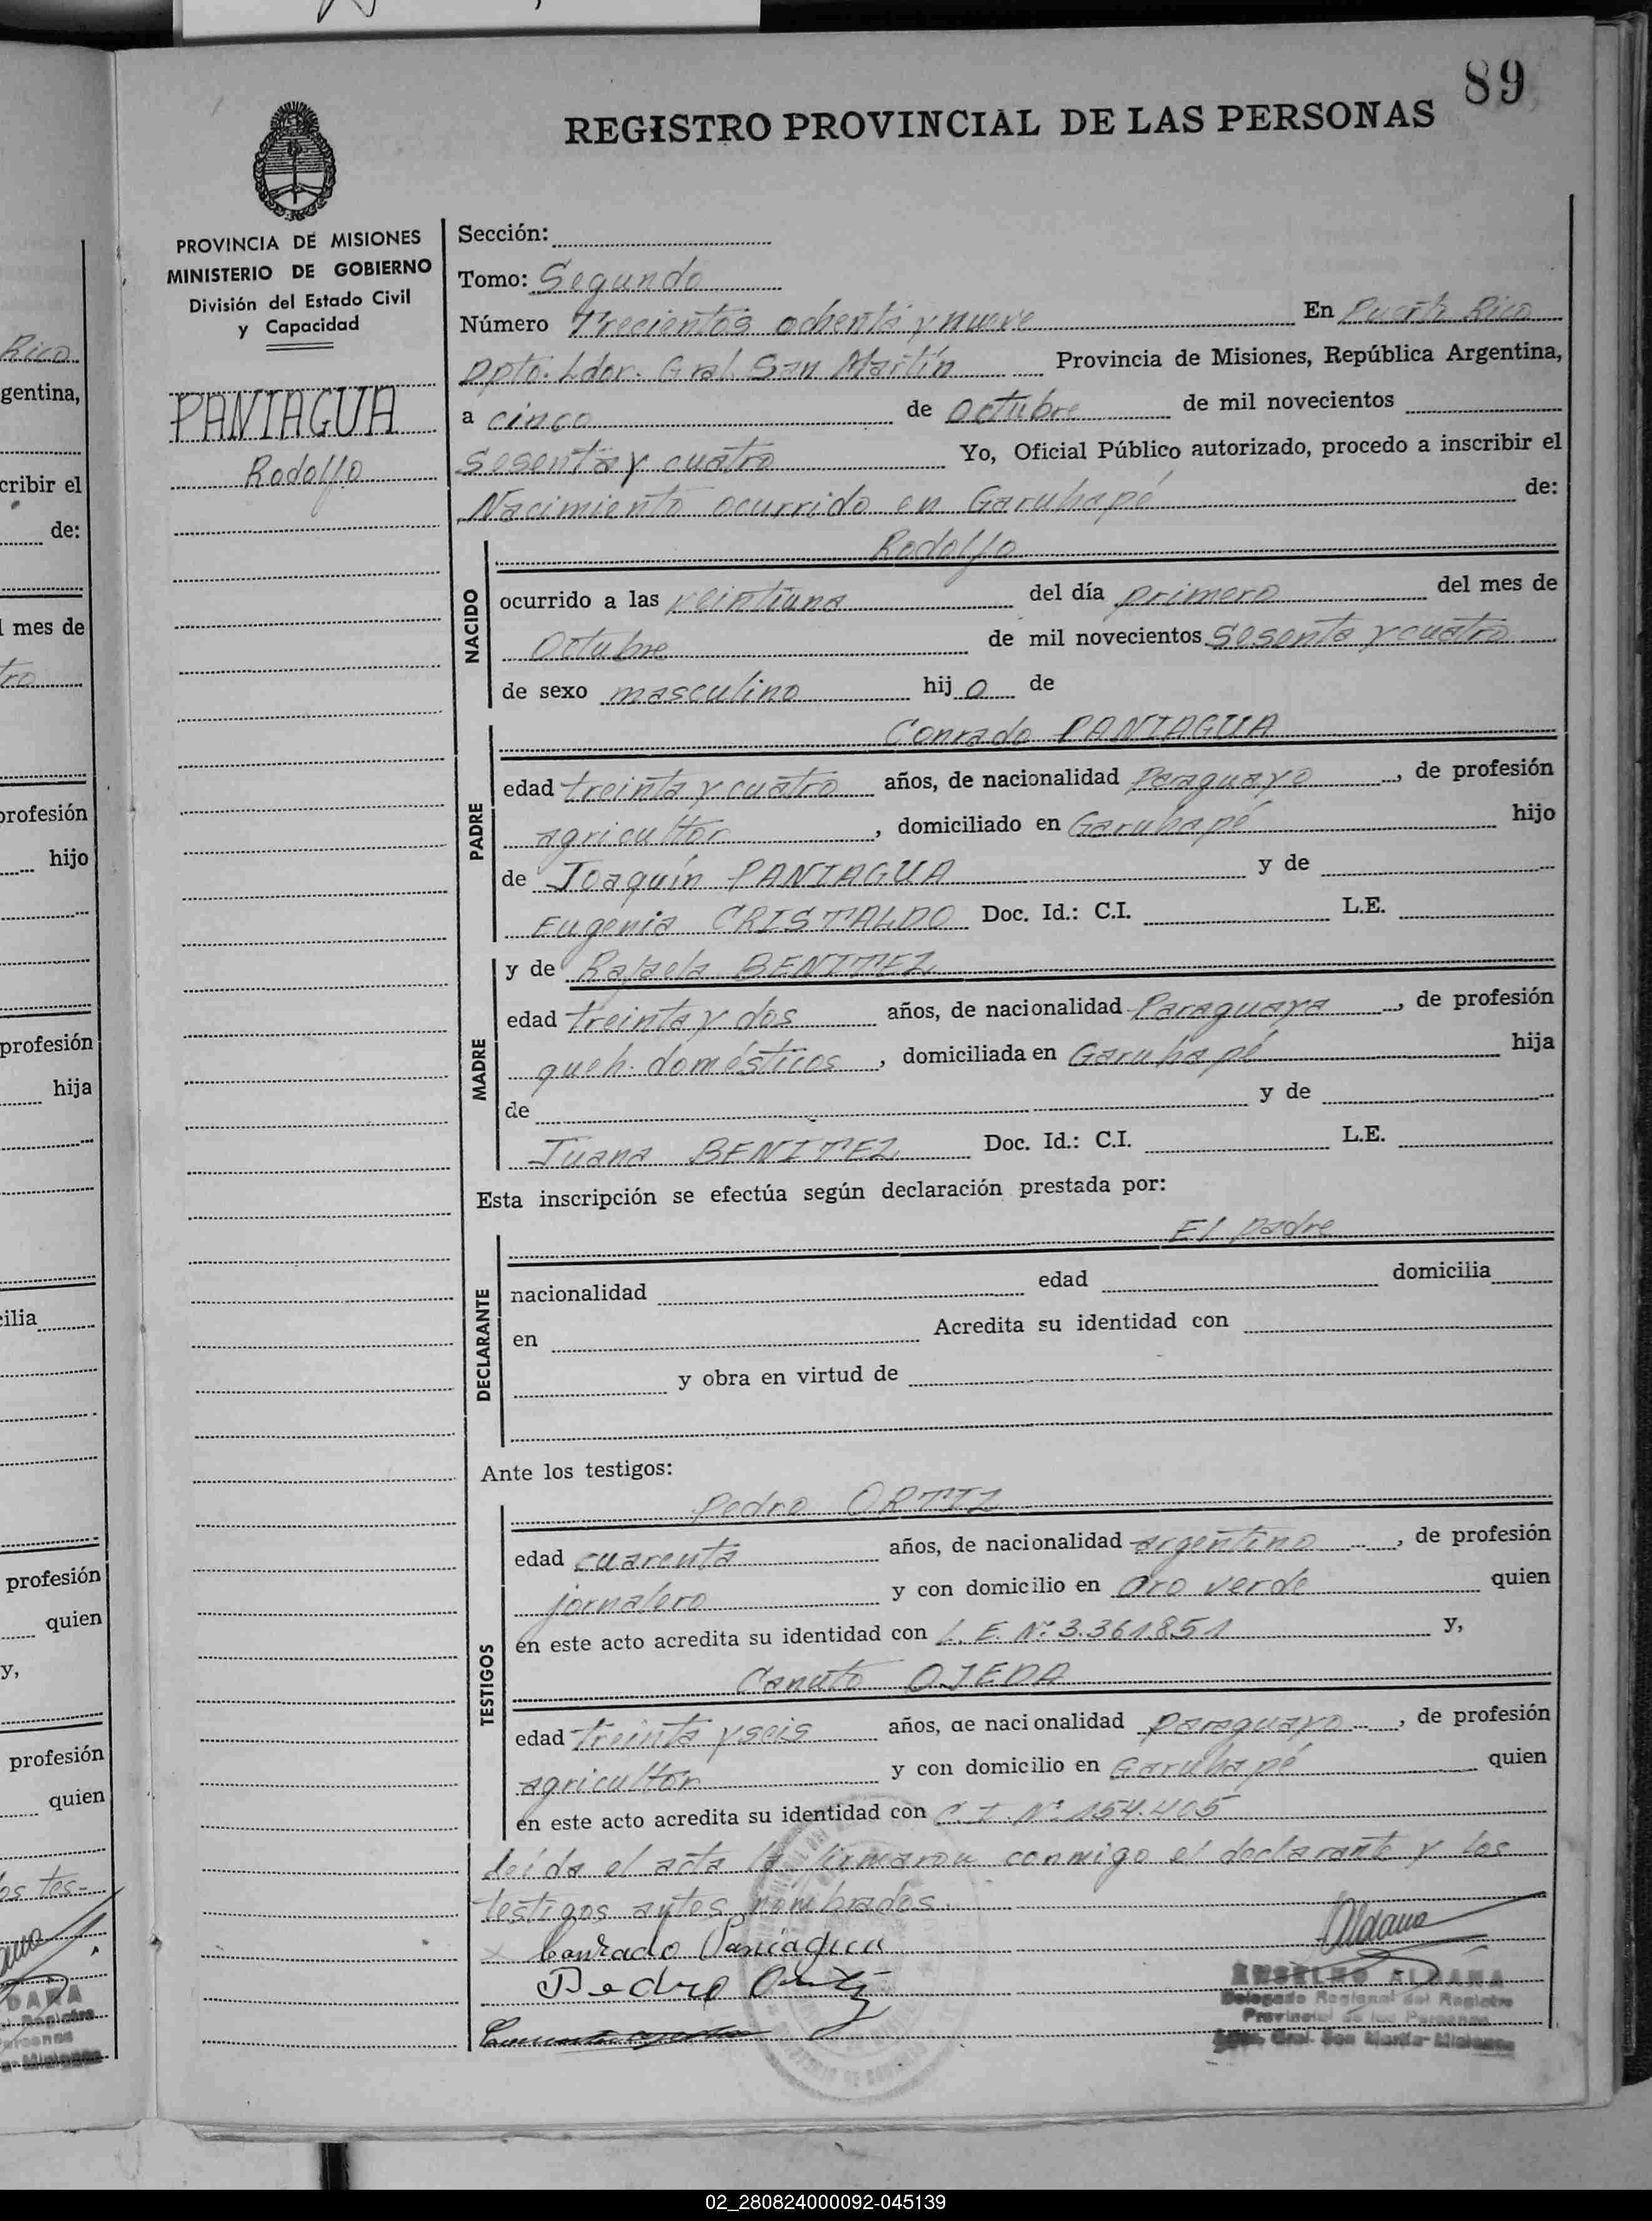 89
REGISTRO PROVINCIAL DE LAS PERSONAS
PROVINCIA DE MISIONES
MINISTERIO DE GOBIERNO
División del Estado Civil
y Capacidad
PANIAGUA
Rodolfo
Sección:
Tomo: Segundo
Número Trecientos ochenta y nueve En Puerto Rico
Dpto. Ldor. Gral. San Martín Provincia de Misiones, República Argentina,
a cinco de Octubre de mil novecientos
Sesenta y cuatro Yo, Oficial Público autorizado, procedo a inscribir el
Nacimiento ocurrido en Garuhapé de:
NACIDO
Rodolfo
ocurrido a las veintiuna del día primero del mes de
Octubre de mil novecientos Sesenta y cuatro
de sexo masculino hijo de
PADRE
Conrado PANIAGUA
edad treinta y cuatro años, de nacionalidad Paraguayo, de profesión
agricultor, domiciliado en Garuhapé hijo
de Joaquín PANIAGUA y de
Eugenia CRISTALDO Doc. Id.: C.I. L.E.
MADRE
y de Rafaela BENITEZ
edad treinta y dos años, de nacionalidad Paraguaya, de profesión
queh. domésticos, domiciliada en Garuhapé hija
de y de
Juana BENITEZ Doc. Id.: C.I. L.E.
Esta inscripción se efectúa según declaración prestada por:
DECLARANTE
El padre
nacionalidad edad domicilia
en Acredita su identidad con
y obra en virtud de
Ante los testigos:
TESTIGOS
Pedro ORTIZ
edad cuarenta años, de nacionalidad argentino, de profesión
jornalero y con domicilio en Oro verde quien
en este acto acredita su identidad con L. E. Nº 3.361.851 y,
Canuto OJEDA
edad treinta y seis años, de nacionalidad paraguayo, de profesión
agricultor y con domicilio en Garuhapé quien
en este acto acredita su identidad con C. I. Nº 154.405
Leída el acta la firmaron conmigo el declarante y los
testigos antes nombrados.
Conrado Paniagua
Aldana
Pedro Ortiz
ANSELMO ALDANA
Delegado Regional del Registro
Provincial de las Personas
Gral. San Martín - Misiones
Rico
gentina,
cribir el
de:
mes de
tro
profesión
hijo
profesión
hija
cilia
profesión
quien
y,
profesión
quien
os tes-
02_280824000092-045139